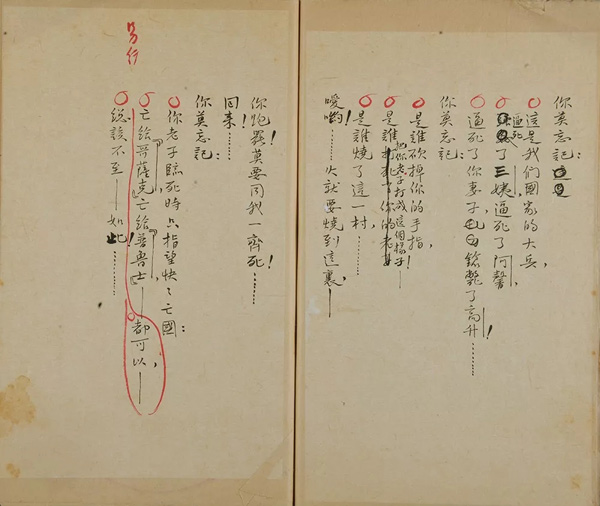 你莫忘記：
這是我們國家的大兵，
逼死了三姨，逼死了阿馨，
逼死了你妻子，鎗斃了高升！………
你莫忘記：
是誰砍掉你的手指，
是誰把你老子打成這個樣子——
是誰燒了這一村，
噯喲！………火就要燒到這裏，——
你跑罷！莫要同我一齊死！………
回来！………
你莫忘記：
你老子臨死時只指望快〻亡國：
亡給『哥薩克』，亡給『普魯士』——都可以，——
總該不至——如此！………
另行